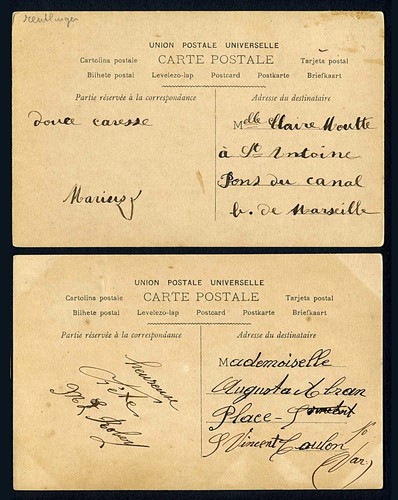 reutlinger
UNION POSTALE UNIVERSELLE
CARTE POSTALE
Cartolina postale Tarjeta postal
Bilhete postal Levelezo-lap Postcard Postkarte Briefkaart
Partie réservée à la correspondance Adresse du destinataire
douce caresse
Marius
Melle Claire Moutte
à St Antoine
Pons du canal
b. de Marseille
UNION POSTALE UNIVERSELLE
CARTE POSTALE
Cartolina postale Tarjeta postal
Bilhete postal Levelezo-lap Postcard Postkarte Briefkaart
Partie réservée à la correspondance Adresse du destinataire
heureuse
fête
Mademoiselle
Augusta
Place
St Vincent Toulon
(Var)